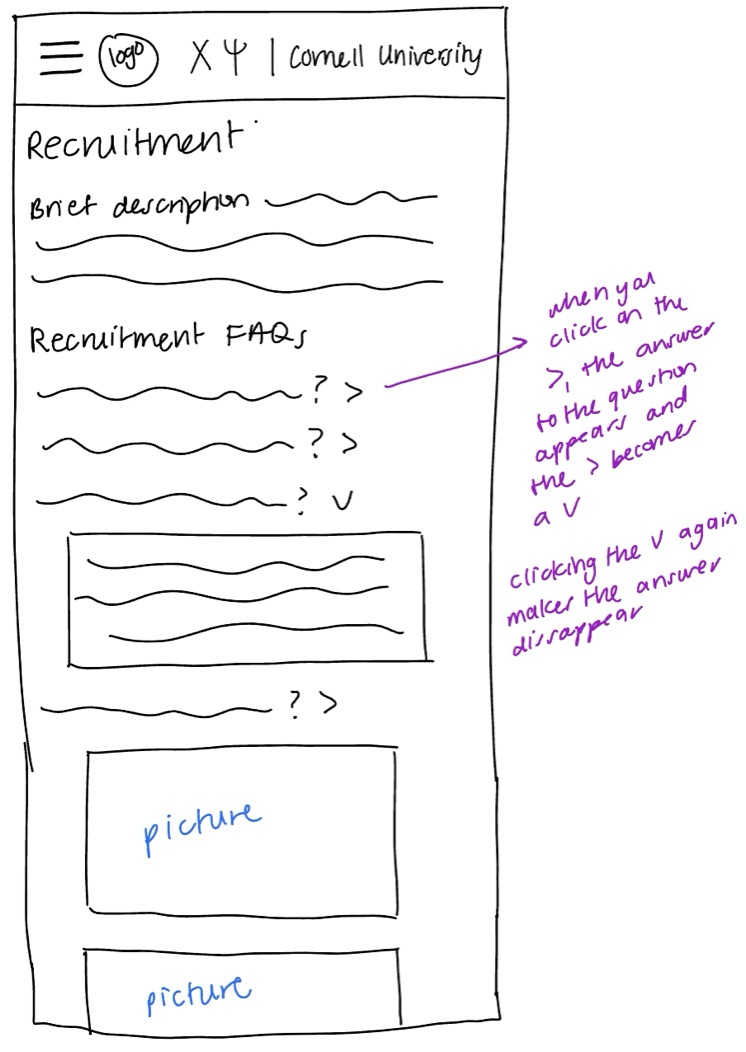 logo Χ Ψ | Cornell University
Recruitment
Brief description
Recruitment FAQs
? >
? >
? v
? >
picture
picture
when you
click on the
>, the answer
to the question
appears and
the > becomes
a V
clicking the V again
makes the answer
dissappear